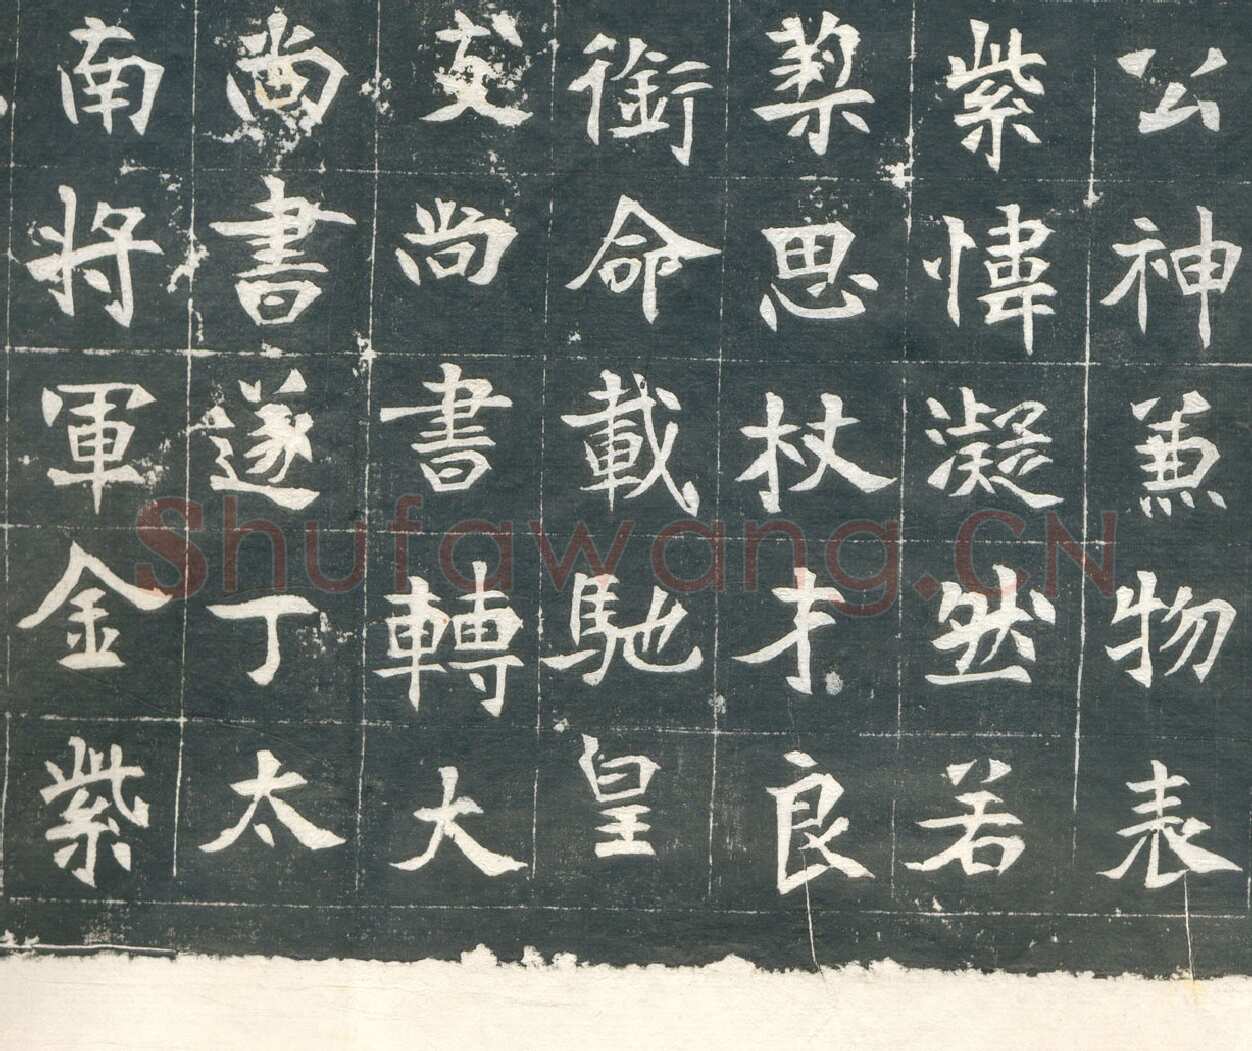 公神兼物表
紫幃凝然若
棃思杖才良
銜命載馳皇
交尚書轉大
尚書遂丁太
南将軍金紫
Shufawang.CN